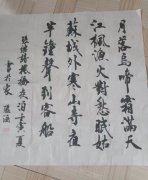 月落烏啼霜滿天
江楓漁火對愁眠姑
蘇城外寒山寺夜
半鐘聲到客船
張繼詩楓橋夜泊
書於家